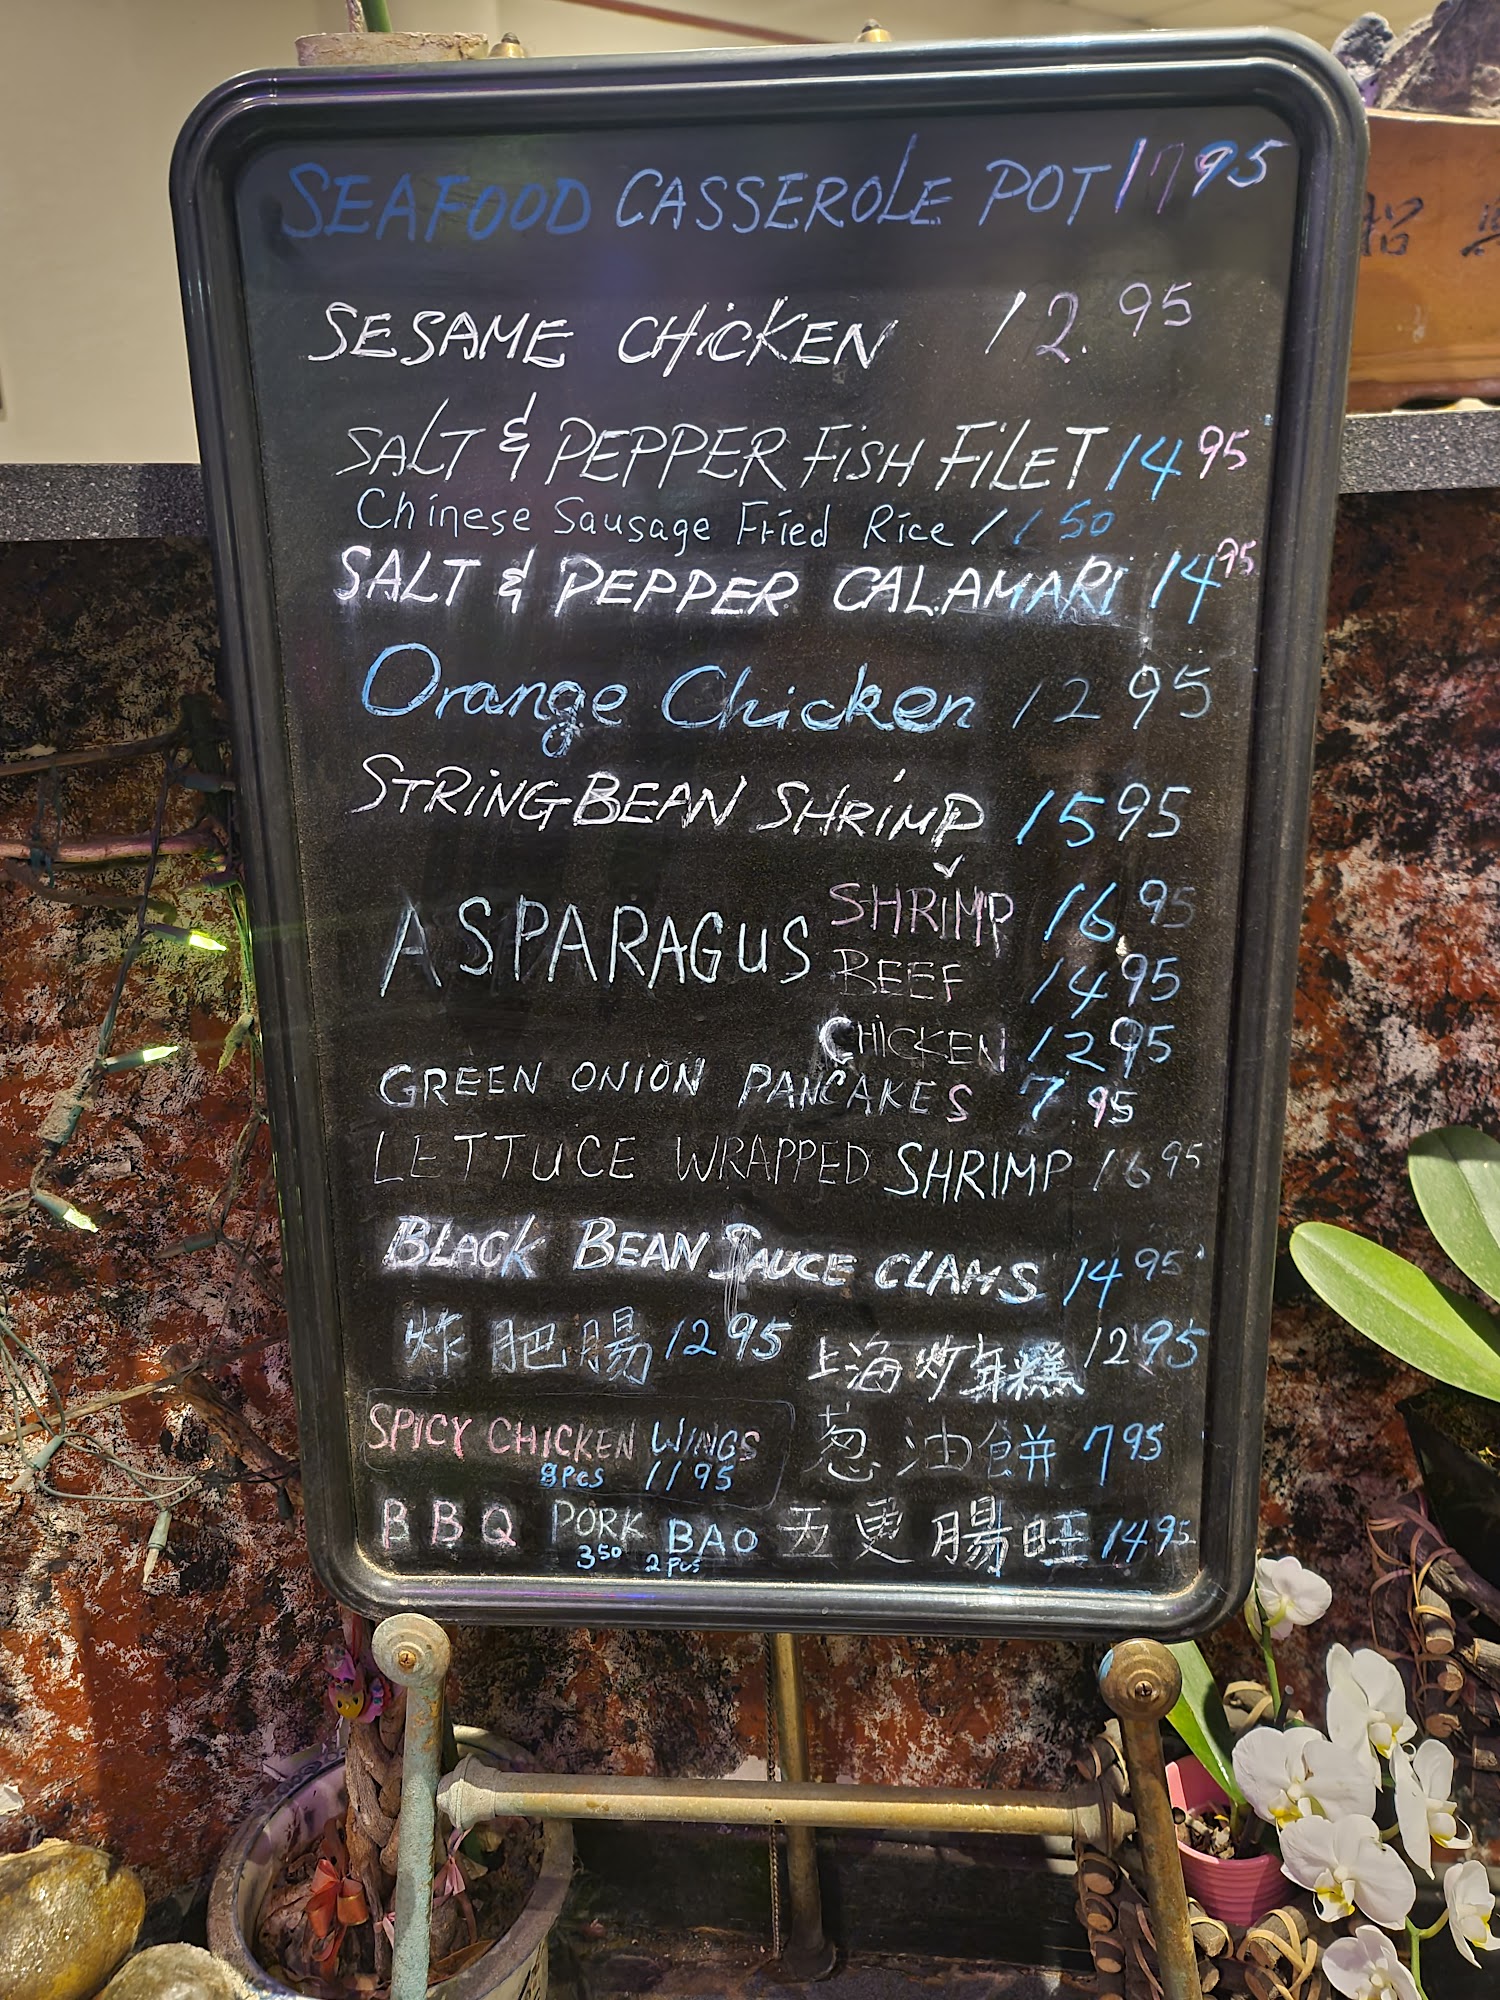 SEAFOOD CASSEROLE POT 17 95
SESAME CHICKEN 12.95
SALT & PEPPER FISH FILET 14 95
Chinese Sausage Fried Rice 11 50
SALT & PEPPER CALAMARI 14 95
Orange Chicken 12 95
STRING BEAN SHRIMP 15 95
ASPARAGUS SHRIMP 16 95
BEEF 14 95
CHICKEN 12 95
GREEN ONION PANCAKES 7.95
LETTUCE WRAPPED SHRIMP 16 95
BLACK BEAN SAUCE CLAMS 14 95
炸肥腸 12 95 上海炒年糕 12 95
SPICY CHICKEN WINGS
8PCS 11 95
葱油餅 7 95
BBQ PORK BAO
3 50 2 PCS
五更腸旺 14 95